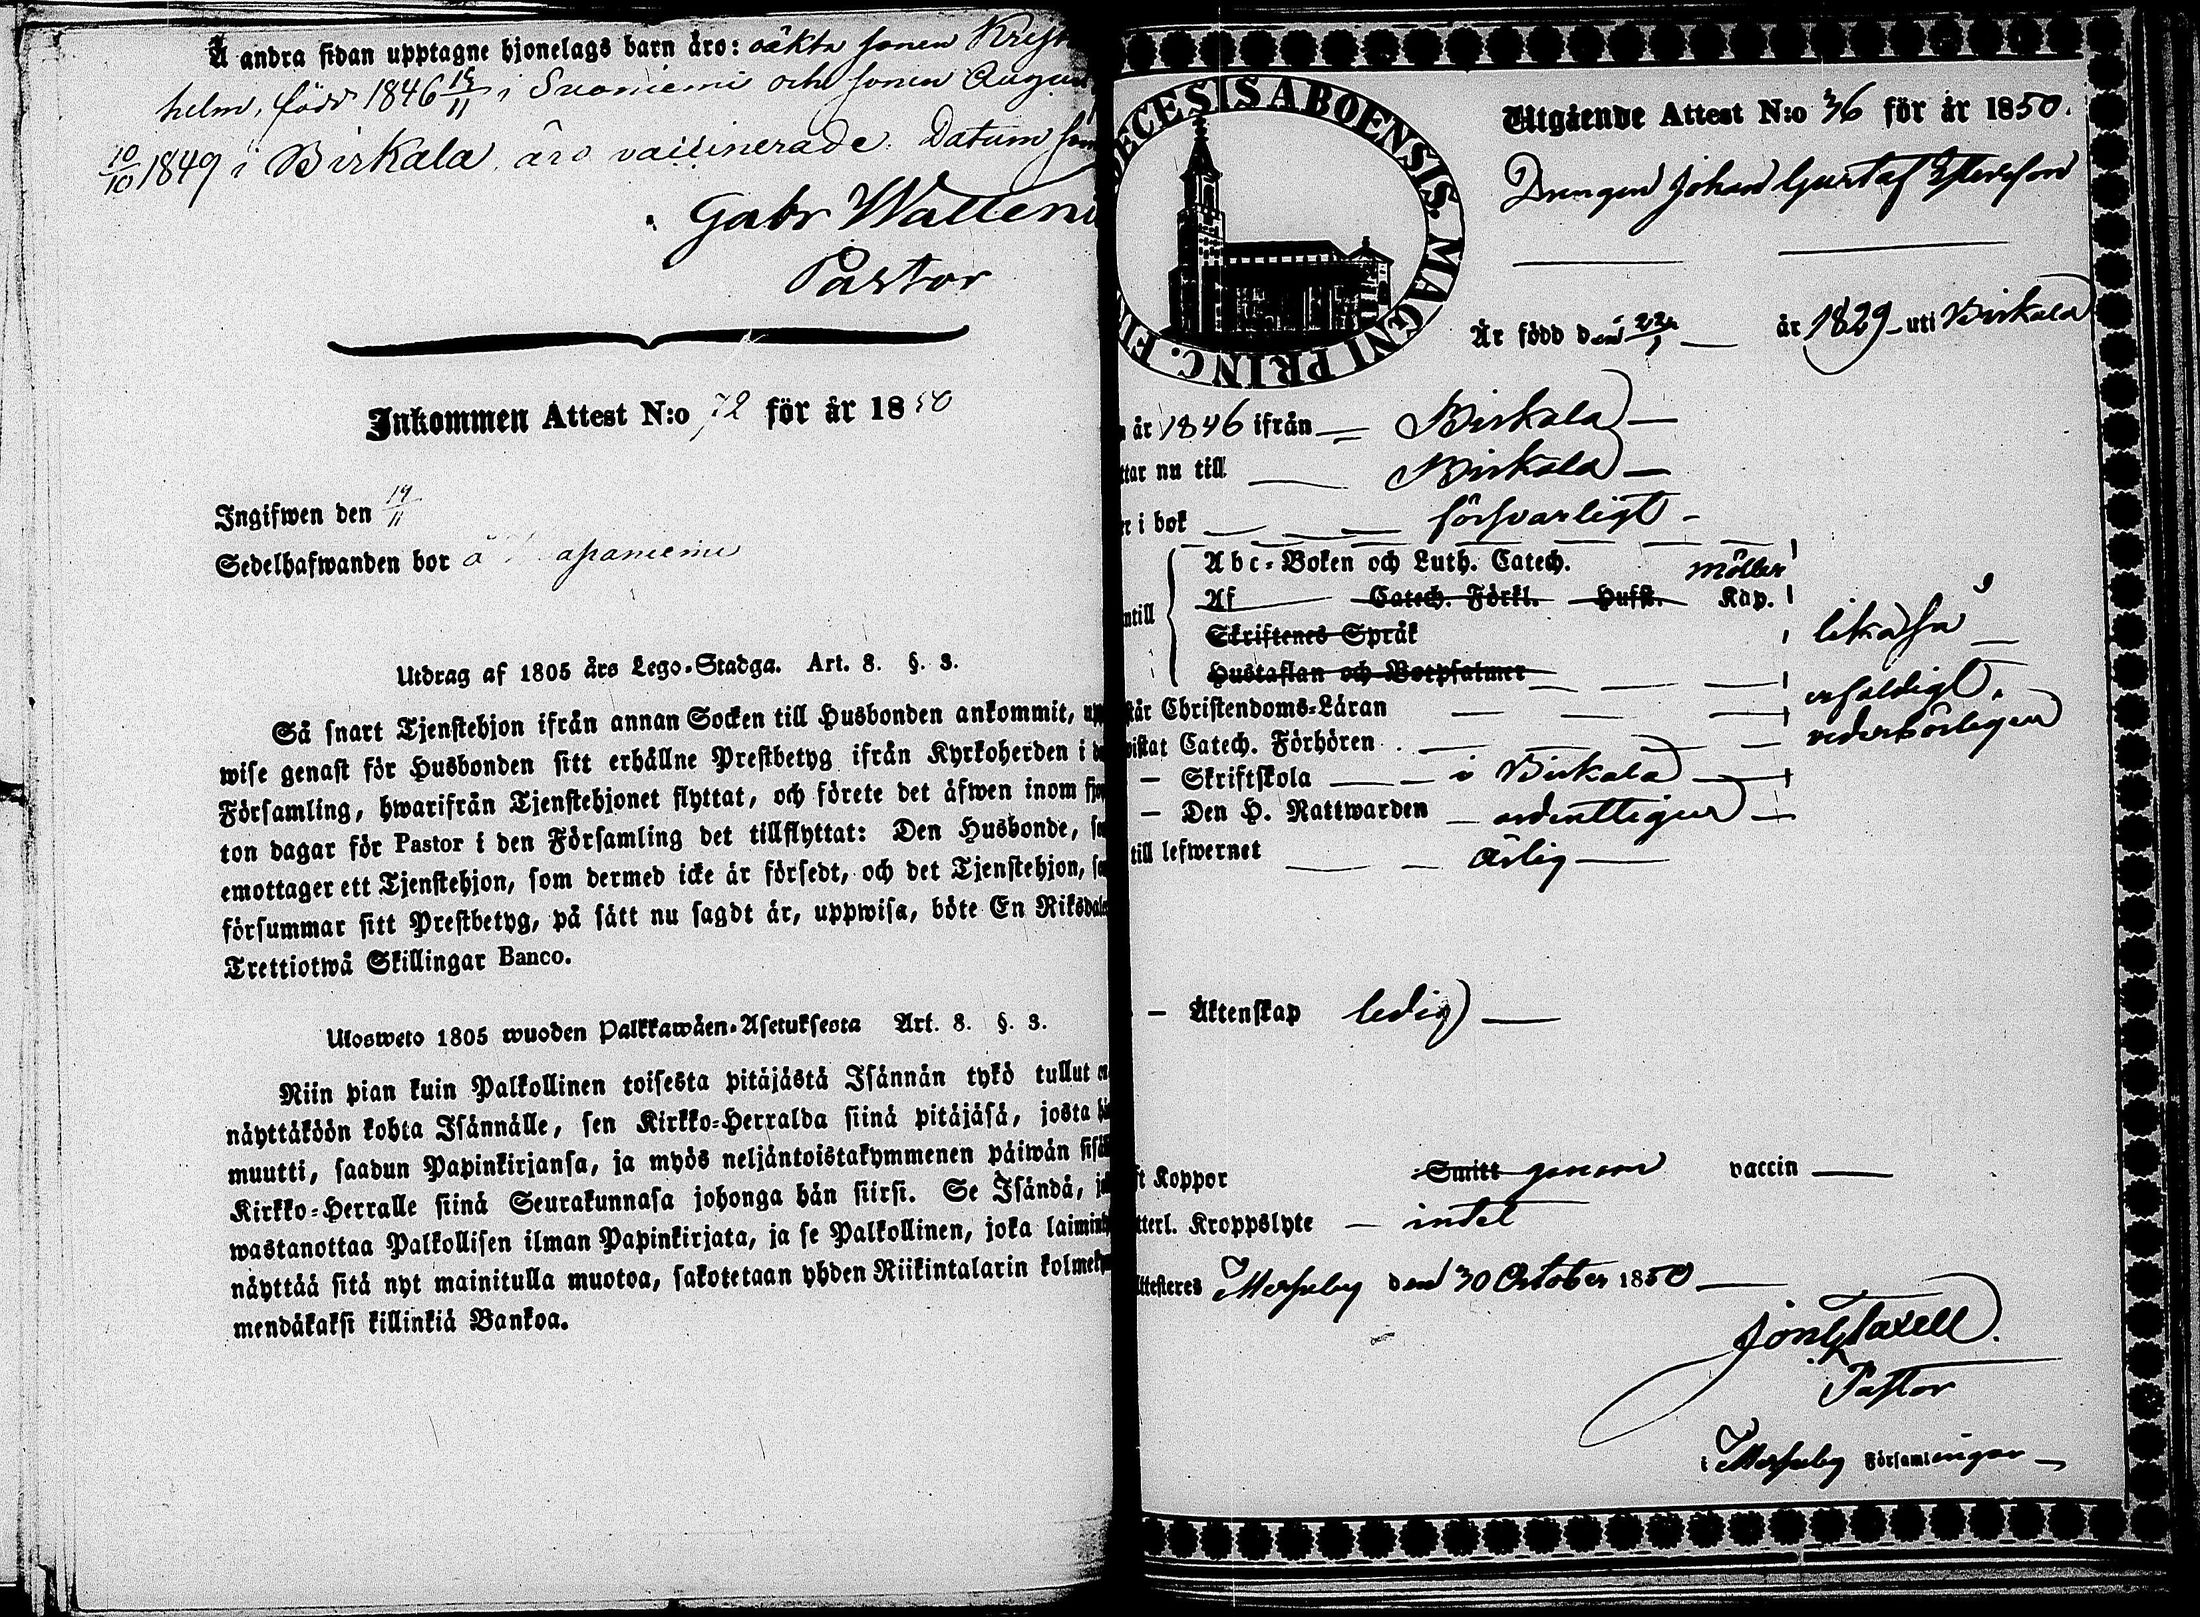 Å andra sidan upptagne hjonelags barn äro: oäkta sonen
helm, född 1846 15/11 i Suoniemi och sonen August
10/10 1849 i Birkala, äro vaccinerade. Datum som
Gabr Walleni
Pastor
Inkommen Attest N:o 72 för år 1850
Ingifwen den 19/11
Sedelhafwanden bor å
Utdrag af 1805 års Lego-Stadga. Art. 8. §. 3.
Så snart Tjenstehjon ifrån annan Socken till Husbonden ankommit, upp
wise genast för Husbonden sitt erhållne Prestbetyg ifrån Kyrkoherden i d
Församling, hwarifrån Tjenstehjonet flyttat, och förete det äfwen inom fjor
ton dagar för Pastor i den Församling det tillflyttat: Den Husbonde, so
emottager ett Tjenstehjon, som dermed icke är försedt, och det Tjenstehjon, so
försummar sitt Prestbetyg, på sätt nu sagdt är, uppwisa, böte En Riksdaler
Trettiotwå Skillingar Banco.
Ulosweto 1805 wuoden Palkkawäen-Asetuksesta Art. 8. §. 3.
Niin pian kuin Palkollinen toisesta pitäjästä Isännän tykö tullut on
näyttäköön kohta Isännälle, sen Kirkko-Herralda siinä pitäjäsä, josta hän
muutti, saadun Papinkirjansa, ja myös neljäntoistakymmenen päiwän sisäl
Kirkko-Herralle siinä Seurakunnasa johonga hän siirsi. Se Isändä, jo
wastanottaa Palkollisen ilman Papinkirjata, ja se Palkollinen, joka laiminly
näyttää sitä nyt mainitulla muotoa, sakotetaan yhden Riikintalarin kolmekym
mendäkaksi killinkiä Bankoa.
DECESIS ABOENSIS. MAGNI PRINC. FIN
Utgående Attest N:o 36 för år 1850.
Drengen Johan Gustaf
Är född den 22/1 år 1829 uti Birkala
år 1846 ifrån Birkala
ttar nu till Birkala
er i bok försvarligt
Abc-Boken och Luth. Catech.
Möller
Af Catech. Förkl. Husst. Kap.
ntill
Skriftenes Språk
likaså
Hustaflan och Botpsalmer
står Christendoms-Läran erfoldigt.
wistat Catech. Förhören vederbörligen
— Skriftskola i Birkala
— Den H. Nattwarden ordentligen
till lefwernet ärlig
— Äktenskap ledig
ft Koppor Smitt genom vaccin
tterl. Kroppslyte intet
Attesteres Messuby den 30 October 1850
Pastor
i Messuby Församlingar